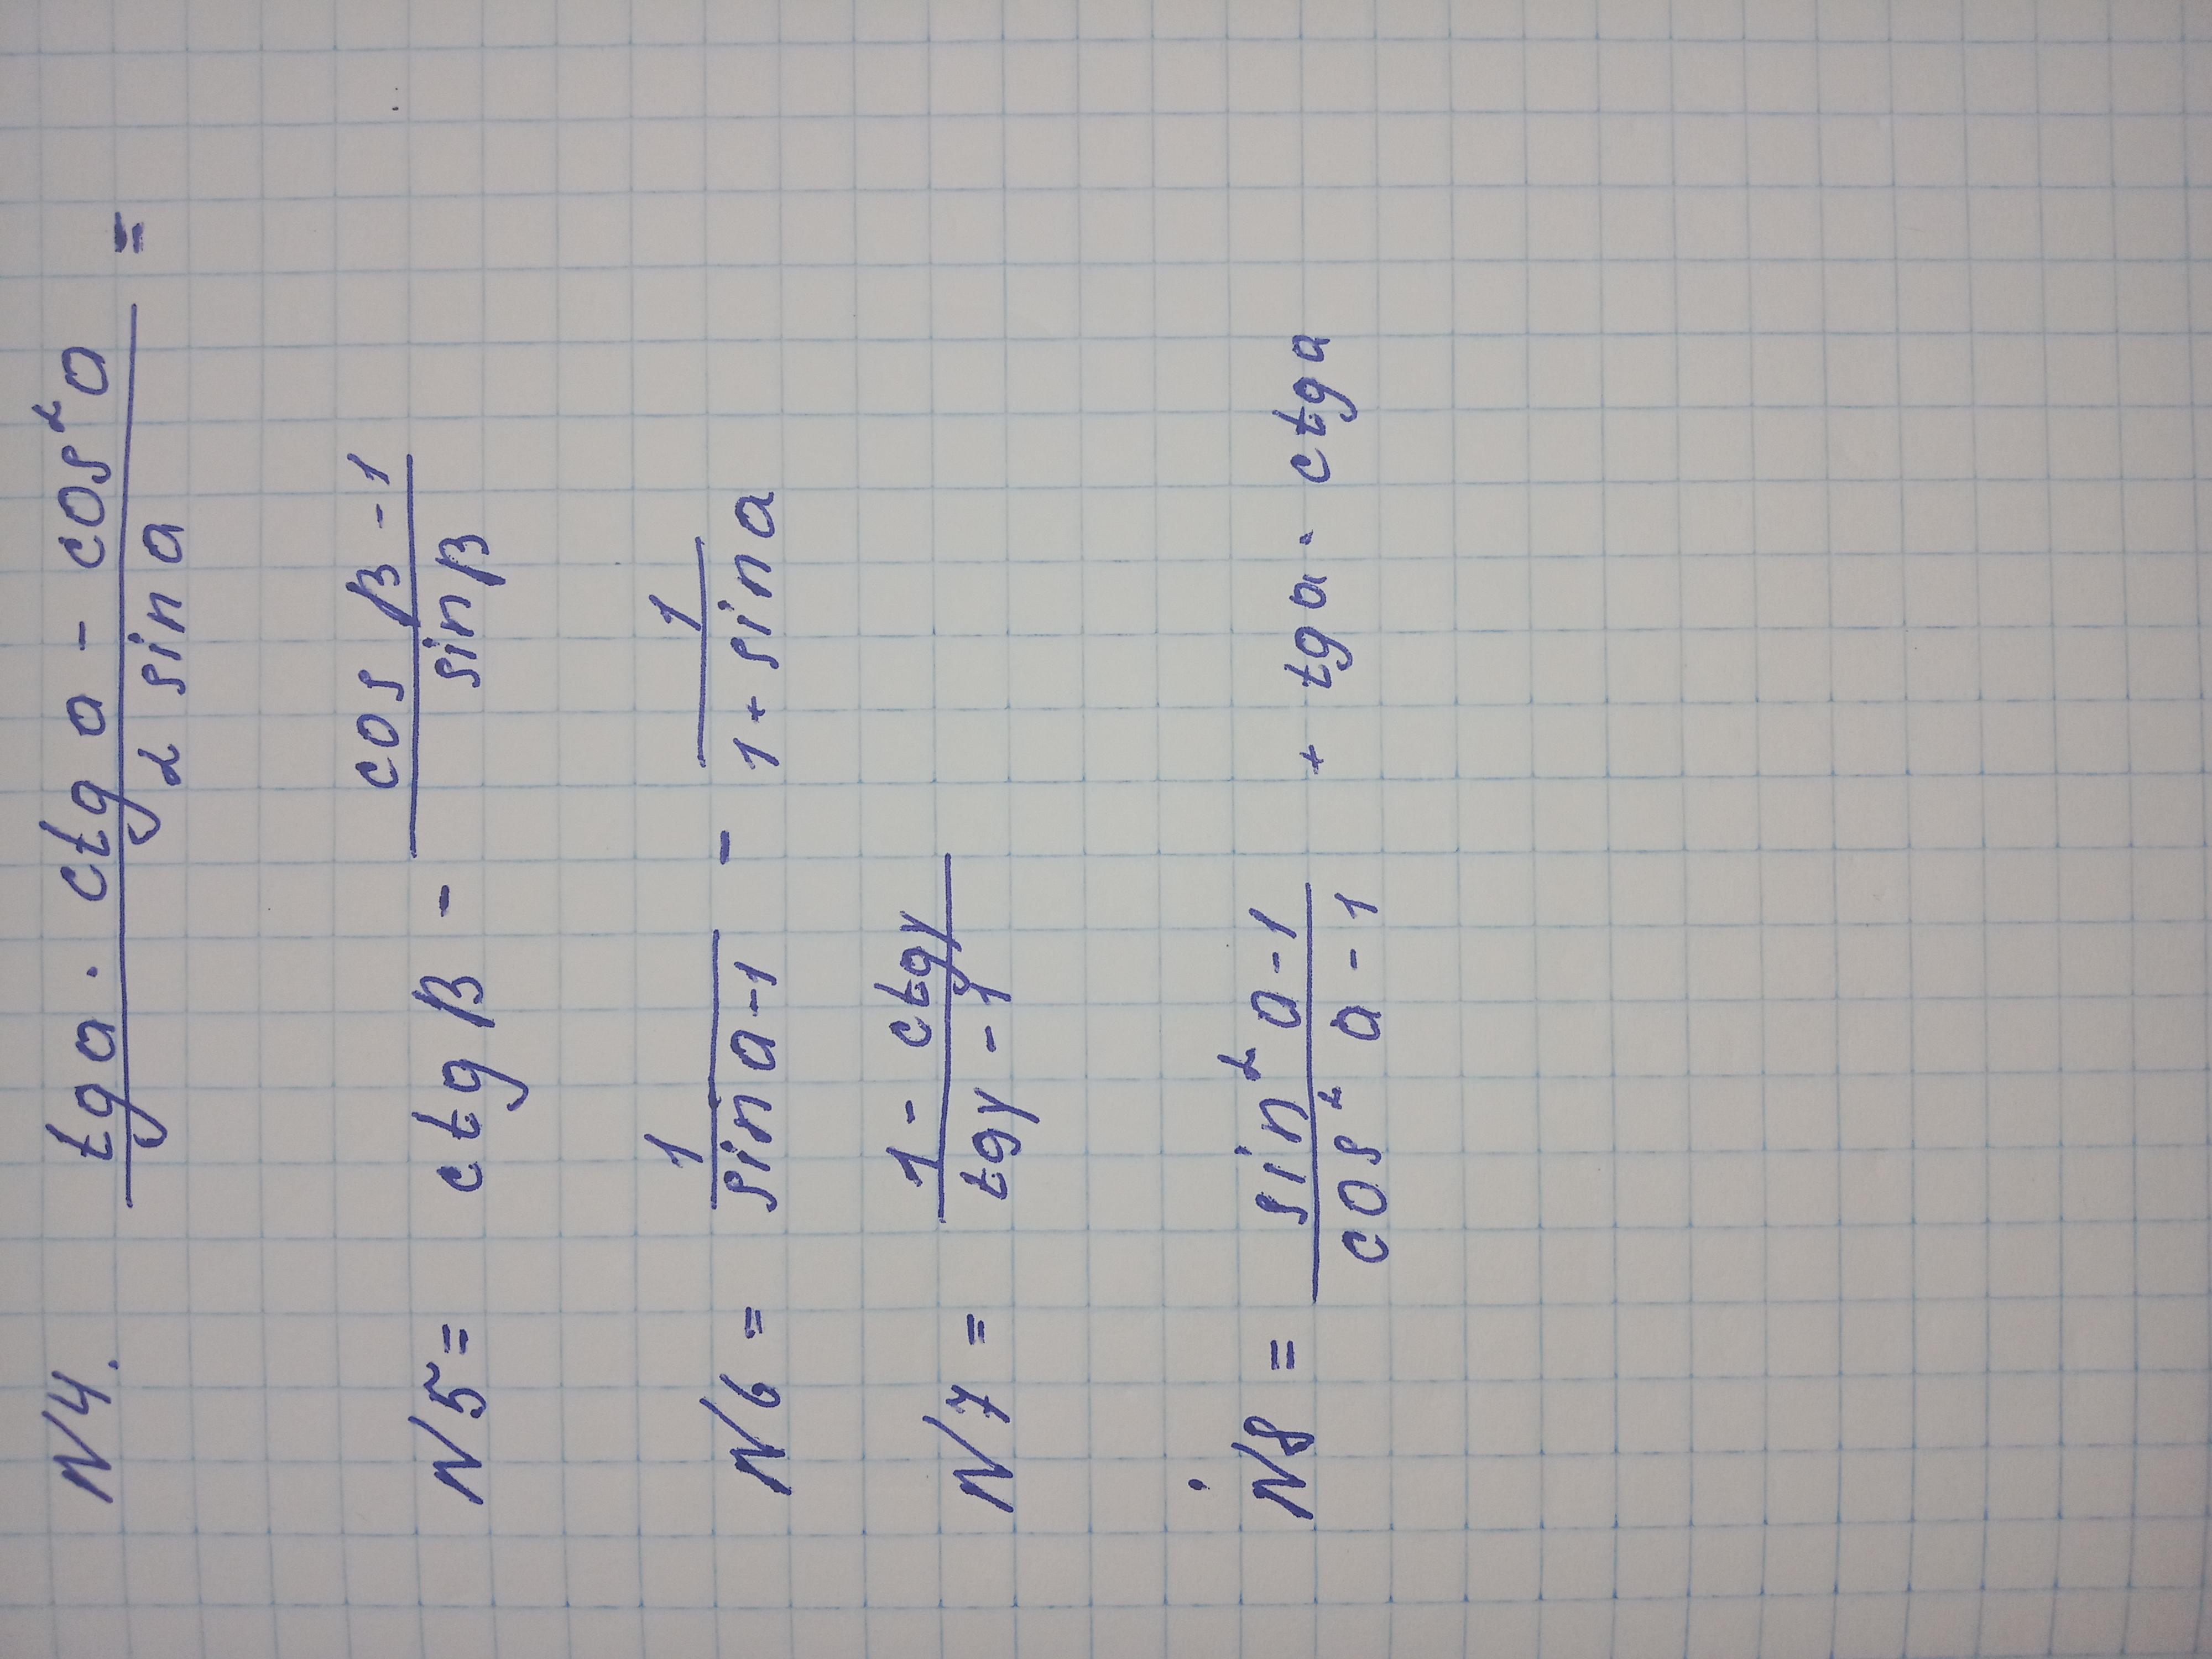 N4. \frac{tg a · ctg a - cos² a}{2 sin a} =
N5 = ctg β - \frac{cos β - 1}{sin β}
N6 = \frac{1}{sin a - 1} - \frac{1}{1 + sin a}
N7 = \frac{1 - ctg γ}{tg γ - 1}
N8 = \frac{sin² a - 1}{cos² a - 1} + tg a · ctg a